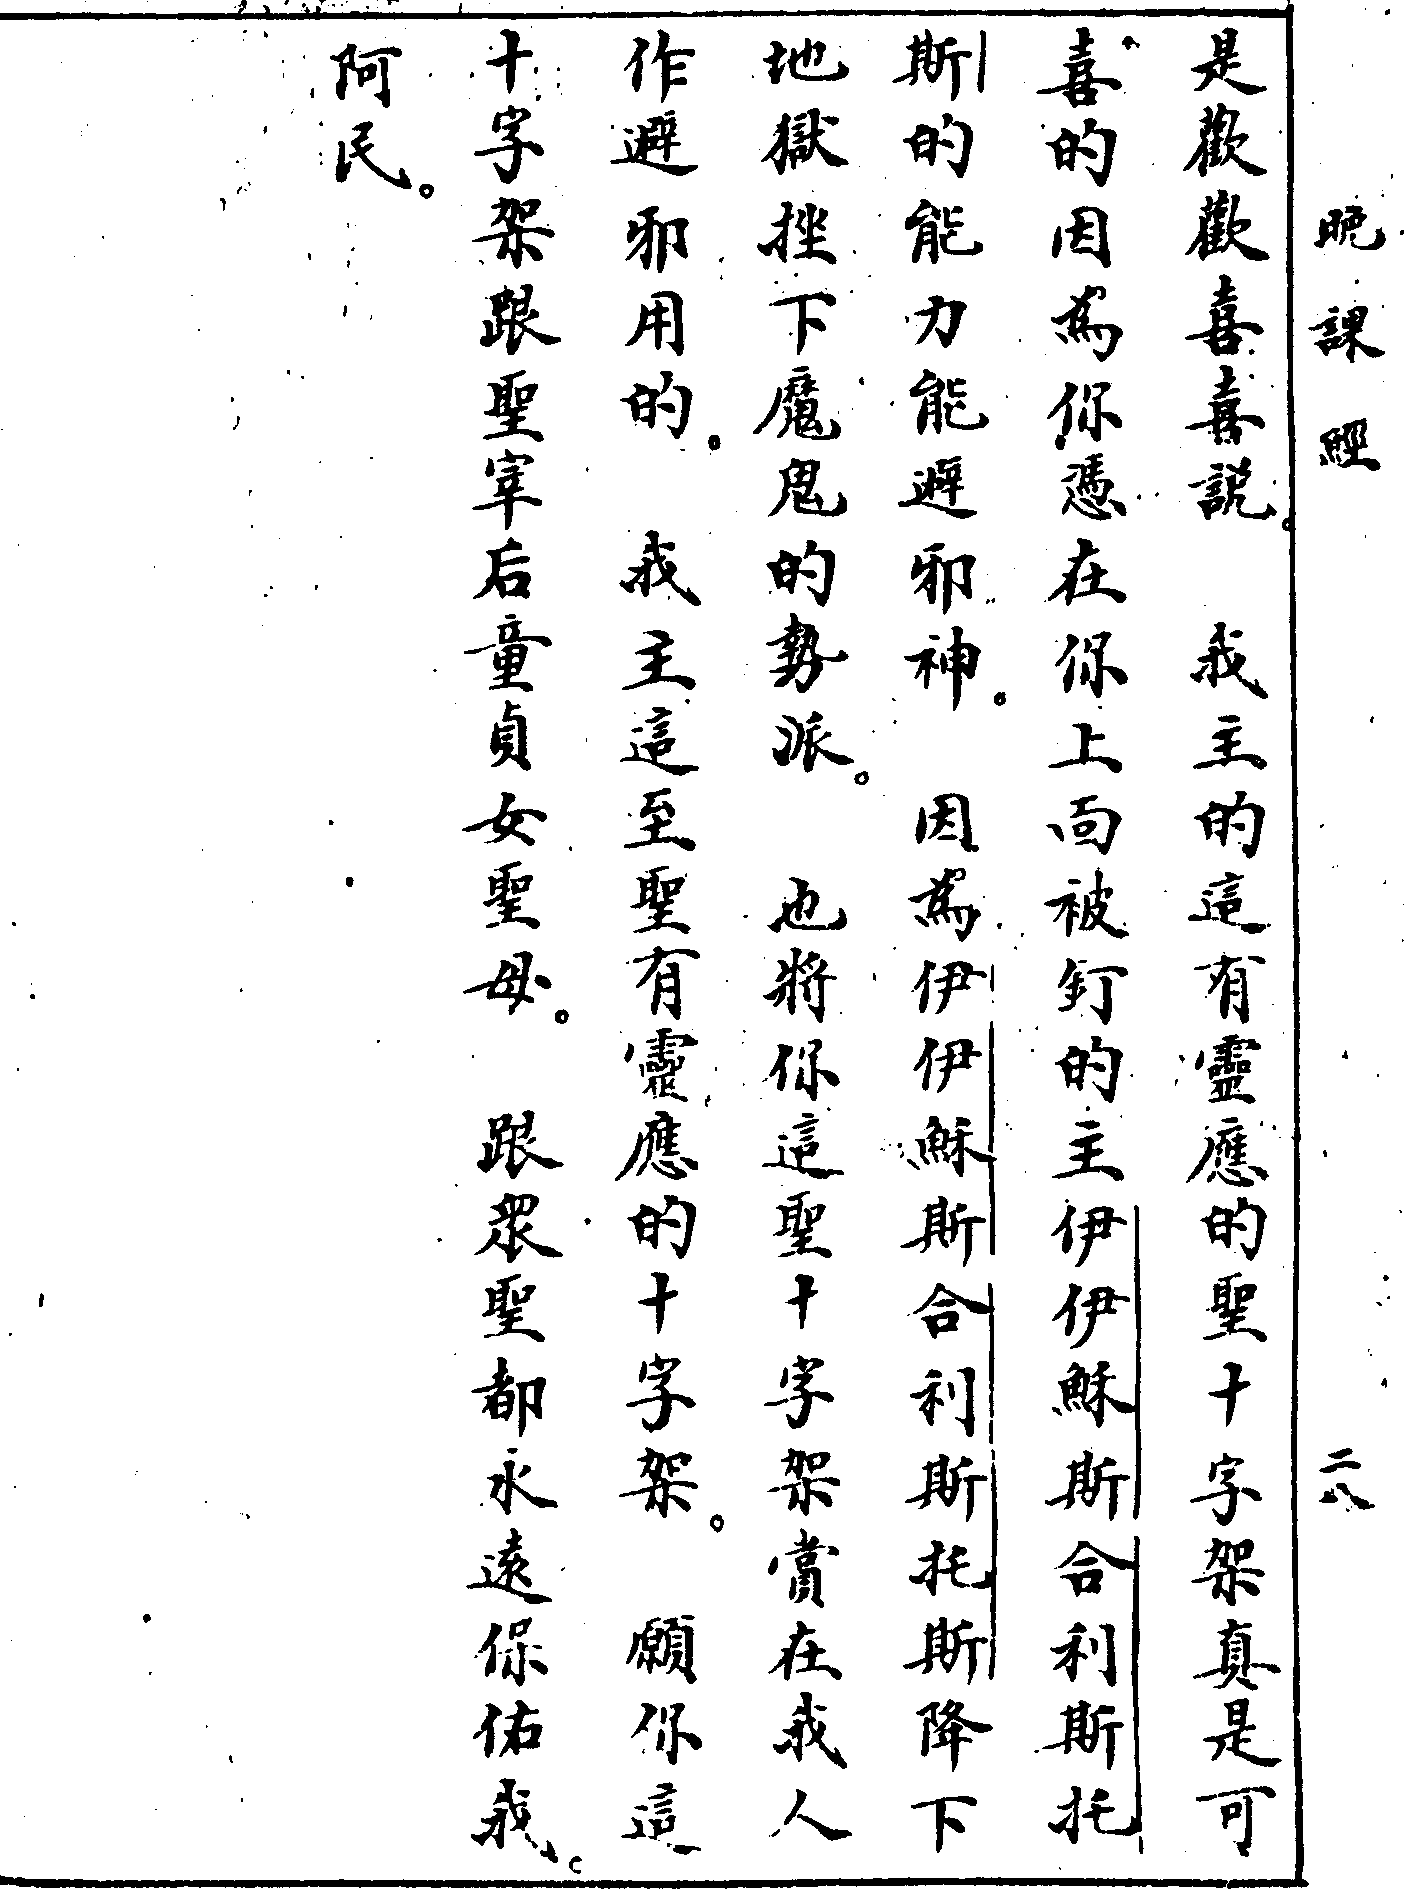 晚課經
二八
是歡歡喜喜說。　我主的這有靈應的聖十字架真是可
喜的因為你憑在你上面被釘的主伊伊穌斯合利斯托
斯的能力能避邪神。　因為伊伊穌斯合利斯托斯降下
地獄挫下魔鬼的勢派。　也將你這聖十字架賞在我人
作避邪用的。　我主這至聖有靈應的十字架。　願你這
十字架跟聖宰后童貞女聖母。　跟眾聖都永遠保佑我。
阿民。